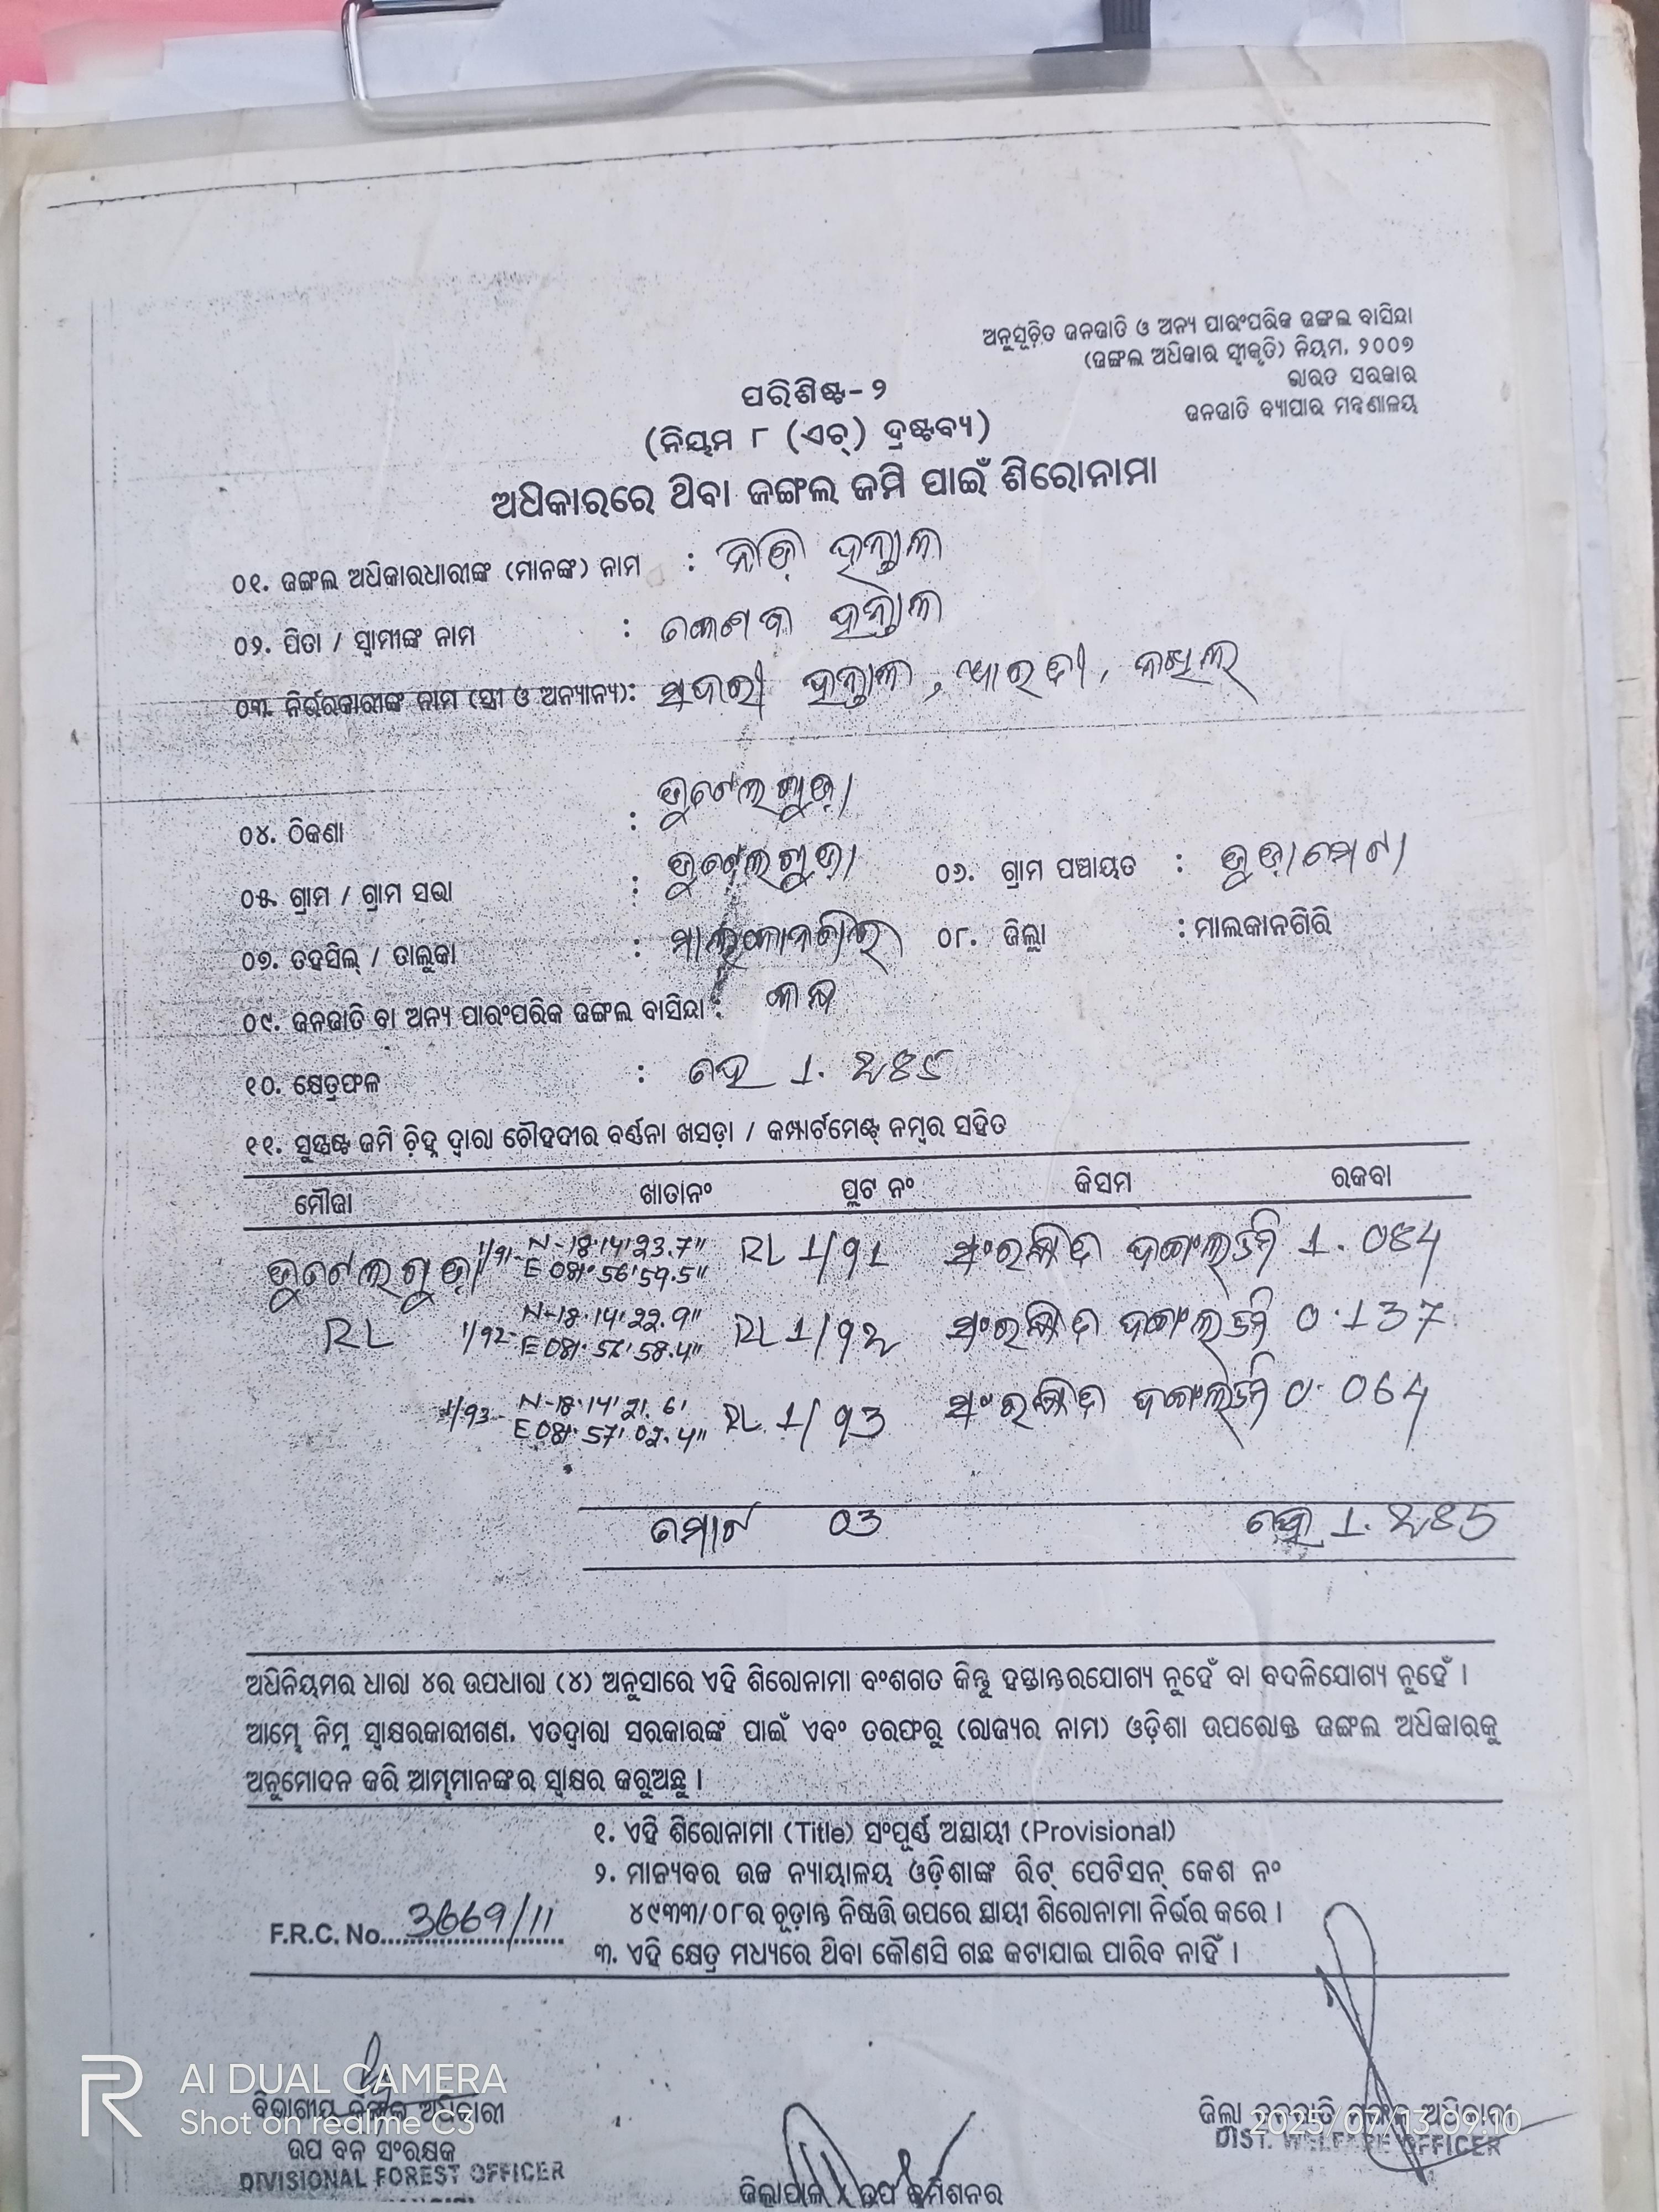 ଅନୁସୂଚିତ ଜନଜାତି ଓ ଅନ୍ୟ ପାରଂପରିକ ଜଙ୍ଗଲ ବାସିନ୍ଦା
(ଜଙ୍ଗଲ ଅଧିକାର ସ୍ୱୀକୃତି) ନିୟମ, ୨୦୦୭
ଭାରତ ସରକାର
ଜନଜାତି ବ୍ୟାପାର ମନ୍ତ୍ରଣାଳୟ
ପରିଶିଷ୍ଟ-୨
(ନିୟମ ୮ (ଏଚ୍) ଦ୍ରଷ୍ଟବ୍ୟ)
ଅଧିକାରରେ ଥିବା ଜଙ୍ଗଲ ଜମି ପାଇଁ ଶିରୋନାମା
୦୧. ଜଙ୍ଗଲ ଅଧିକାରଧାରୀଙ୍କ (ମାନଙ୍କ) ନାମ :
୦୨. ପିତା / ସ୍ୱାମୀଙ୍କ ନାମ :
୦୩. ନିର୍ଭରକାରୀଙ୍କ ନାମ (ସ୍ତ୍ରୀ ଓ ଅନ୍ୟାନ୍ୟ):
୦୪. ଠିକଣା :
୦୫. ଗ୍ରାମ / ଗ୍ରାମ ସଭା : ୦୬. ଗ୍ରାମ ପଞ୍ଚାୟତ :
୦୭. ତହସିଲ୍ / ତାଲୁକା : ମାଲକାନଗିରି ୦୮. ଜିଲ୍ଲା : ମାଲକାନଗିରି
୦୯. ଜନଜାତି ବା ଅନ୍ୟ ପାରଂପରିକ ଜଙ୍ଗଲ ବାସିନ୍ଦା : କନ୍ଧ
୧୦. କ୍ଷେତ୍ରଫଳ : ହେ 1.285
୧୧. ସୁସ୍ପଷ୍ଟ ଜମି ଚିହ୍ନ ଦ୍ୱାରା ଚୌହଦୀର ବର୍ଣ୍ଣନା ଖସଡ଼ା / କମ୍ପାର୍ଟମେଣ୍ଟ୍ ନମ୍ବର ସହିତ
ମୌଜା ଖାତାନଂ ପ୍ଲଟ ନଂ କିସମ ରକବା
1/91- N-18·14'23.7" RL 1/91 ସଂରକ୍ଷିତ ଜଙ୍ଗଲ ଜମି 1.084
E 081· 56'59.5"
RL 1/92- N-18·14'22.9" RL 1/92 ସଂରକ୍ଷିତ ଜଙ୍ଗଲ ଜମି 0.137
E 081· 58.4"
1/93- N-18·14'21.6' RL 1/93 ସଂରକ୍ଷିତ ଜଙ୍ଗଲ ଜମି 0.064
E 081· 57' 02.4"
ମୋଟ 03 ହେ 1.285
ଅଧିନିୟମର ଧାରା ୪ର ଉପଧାରା (୪) ଅନୁସାରେ ଏହି ଶିରୋନାମା ବଂଶଗତ କିନ୍ତୁ ହସ୍ତାନ୍ତରଯୋଗ୍ୟ ନୁହେଁ ବା ବଦଳିଯୋଗ୍ୟ ନୁହେଁ ।
ଆମ୍ଭେ ନିମ୍ନ ସ୍ୱାକ୍ଷରକାରୀଗଣ, ଏତଦ୍ୱାରା ସରକାରଙ୍କ ପାଇଁ ଏବଂ ତରଫରୁ (ରାଜ୍ୟର ନାମ) ଓଡ଼ିଶା ଉପରୋକ୍ତ ଜଙ୍ଗଲ ଅଧିକାରକୁ
ଅନୁମୋଦନ କରି ଆମ୍ଭମାନଙ୍କର ସ୍ୱାକ୍ଷର କରୁଅଛୁ ।
୧. ଏହି ଶିରୋନାମା (Title) ସଂପୂର୍ଣ୍ଣ ଅସ୍ଥାୟୀ (Provisional)
୨. ମାନ୍ୟବର ଉଚ୍ଚ ନ୍ୟାୟାଳୟ ଓଡ଼ିଶାଙ୍କ ରିଟ୍ ପେଟିସନ୍ କେଶ ନଂ
୪୯୩୩/୦୮ର ଚୂଡ଼ାନ୍ତ ନିଷ୍ପତ୍ତି ଉପରେ ସ୍ଥାୟୀ ଶିରୋନାମା ନିର୍ଭର କରେ ।
F.R.C. No. 3669/11
୩. ଏହି କ୍ଷେତ୍ର ମଧ୍ୟରେ ଥିବା କୌଣସି ଗଛ କଟାଯାଇ ପାରିବ ନାହିଁ ।
AI DUAL CAMERA
Shot on realme C3
ବିଭାଗୀୟ ଜଙ୍ଗଲ ଅଧିକାରୀ
ଉପ ବନ ସଂରକ୍ଷକ
DIVISIONAL FOREST OFFICER
ଜିଲ୍ଲାପାଳ / ଉପ କମିଶନର
ଜିଲ୍ଲା ଜନଜାତି ମଙ୍ଗଳ ଅଧିକାରୀ
2025/07/13 09:10
DIST. WELFARE OFFICER